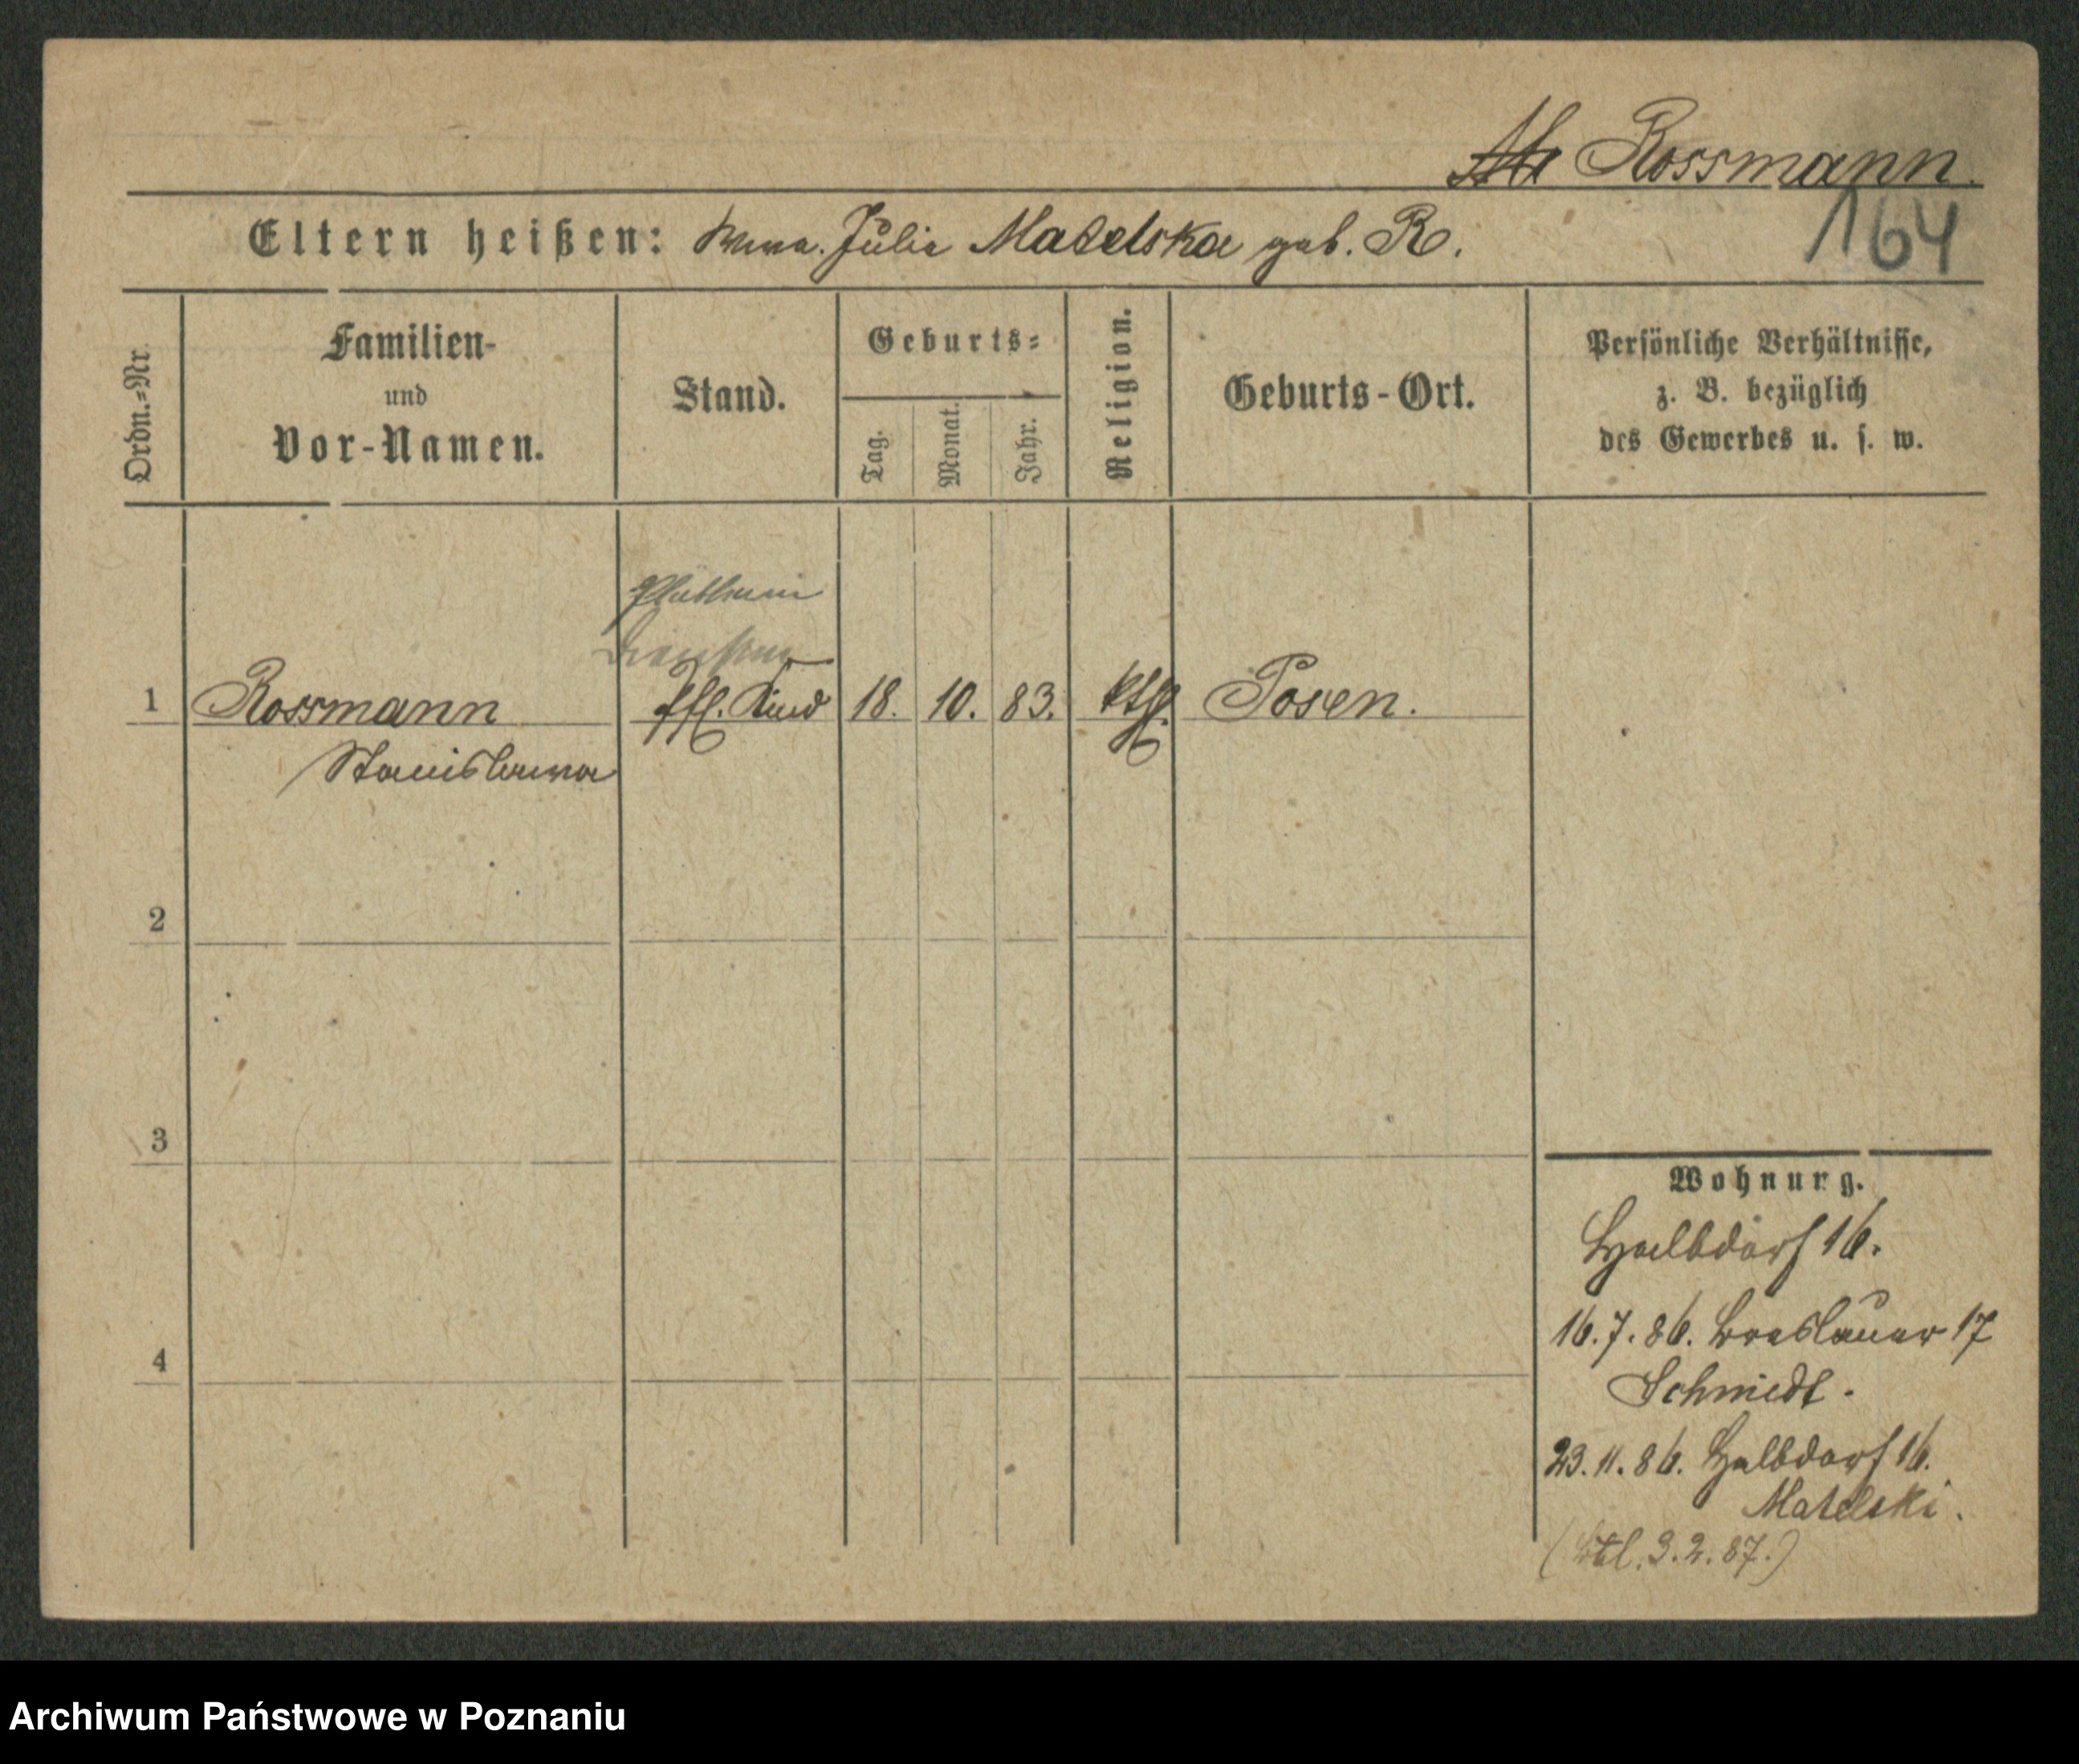 Rossmann.
164
Eltern heißen: Wwe. Julie Matelska geb. R.
Ordn.=Nr.
Familien-
und
Vor-Namen.
Stand.
Geburts=
Tag.
Monat.
Jahr.
Religion.
Geburts-Ort.
Persönliche Verhältnisse,
z. B. bezüglich
des Gewerbes u. s. w.
Plätterin
1 Rossmann Kind 18. 10. 83. kth. Posen.
Stanislawa
2
3
4
Wohnung.
Halbdorf 16.
16.7.86. Breslauer 17
Schmidt.
23.11.86. Halbdorf 16.
Matelski.
3.2.87.)
Archiwum Państwowe w Poznaniu